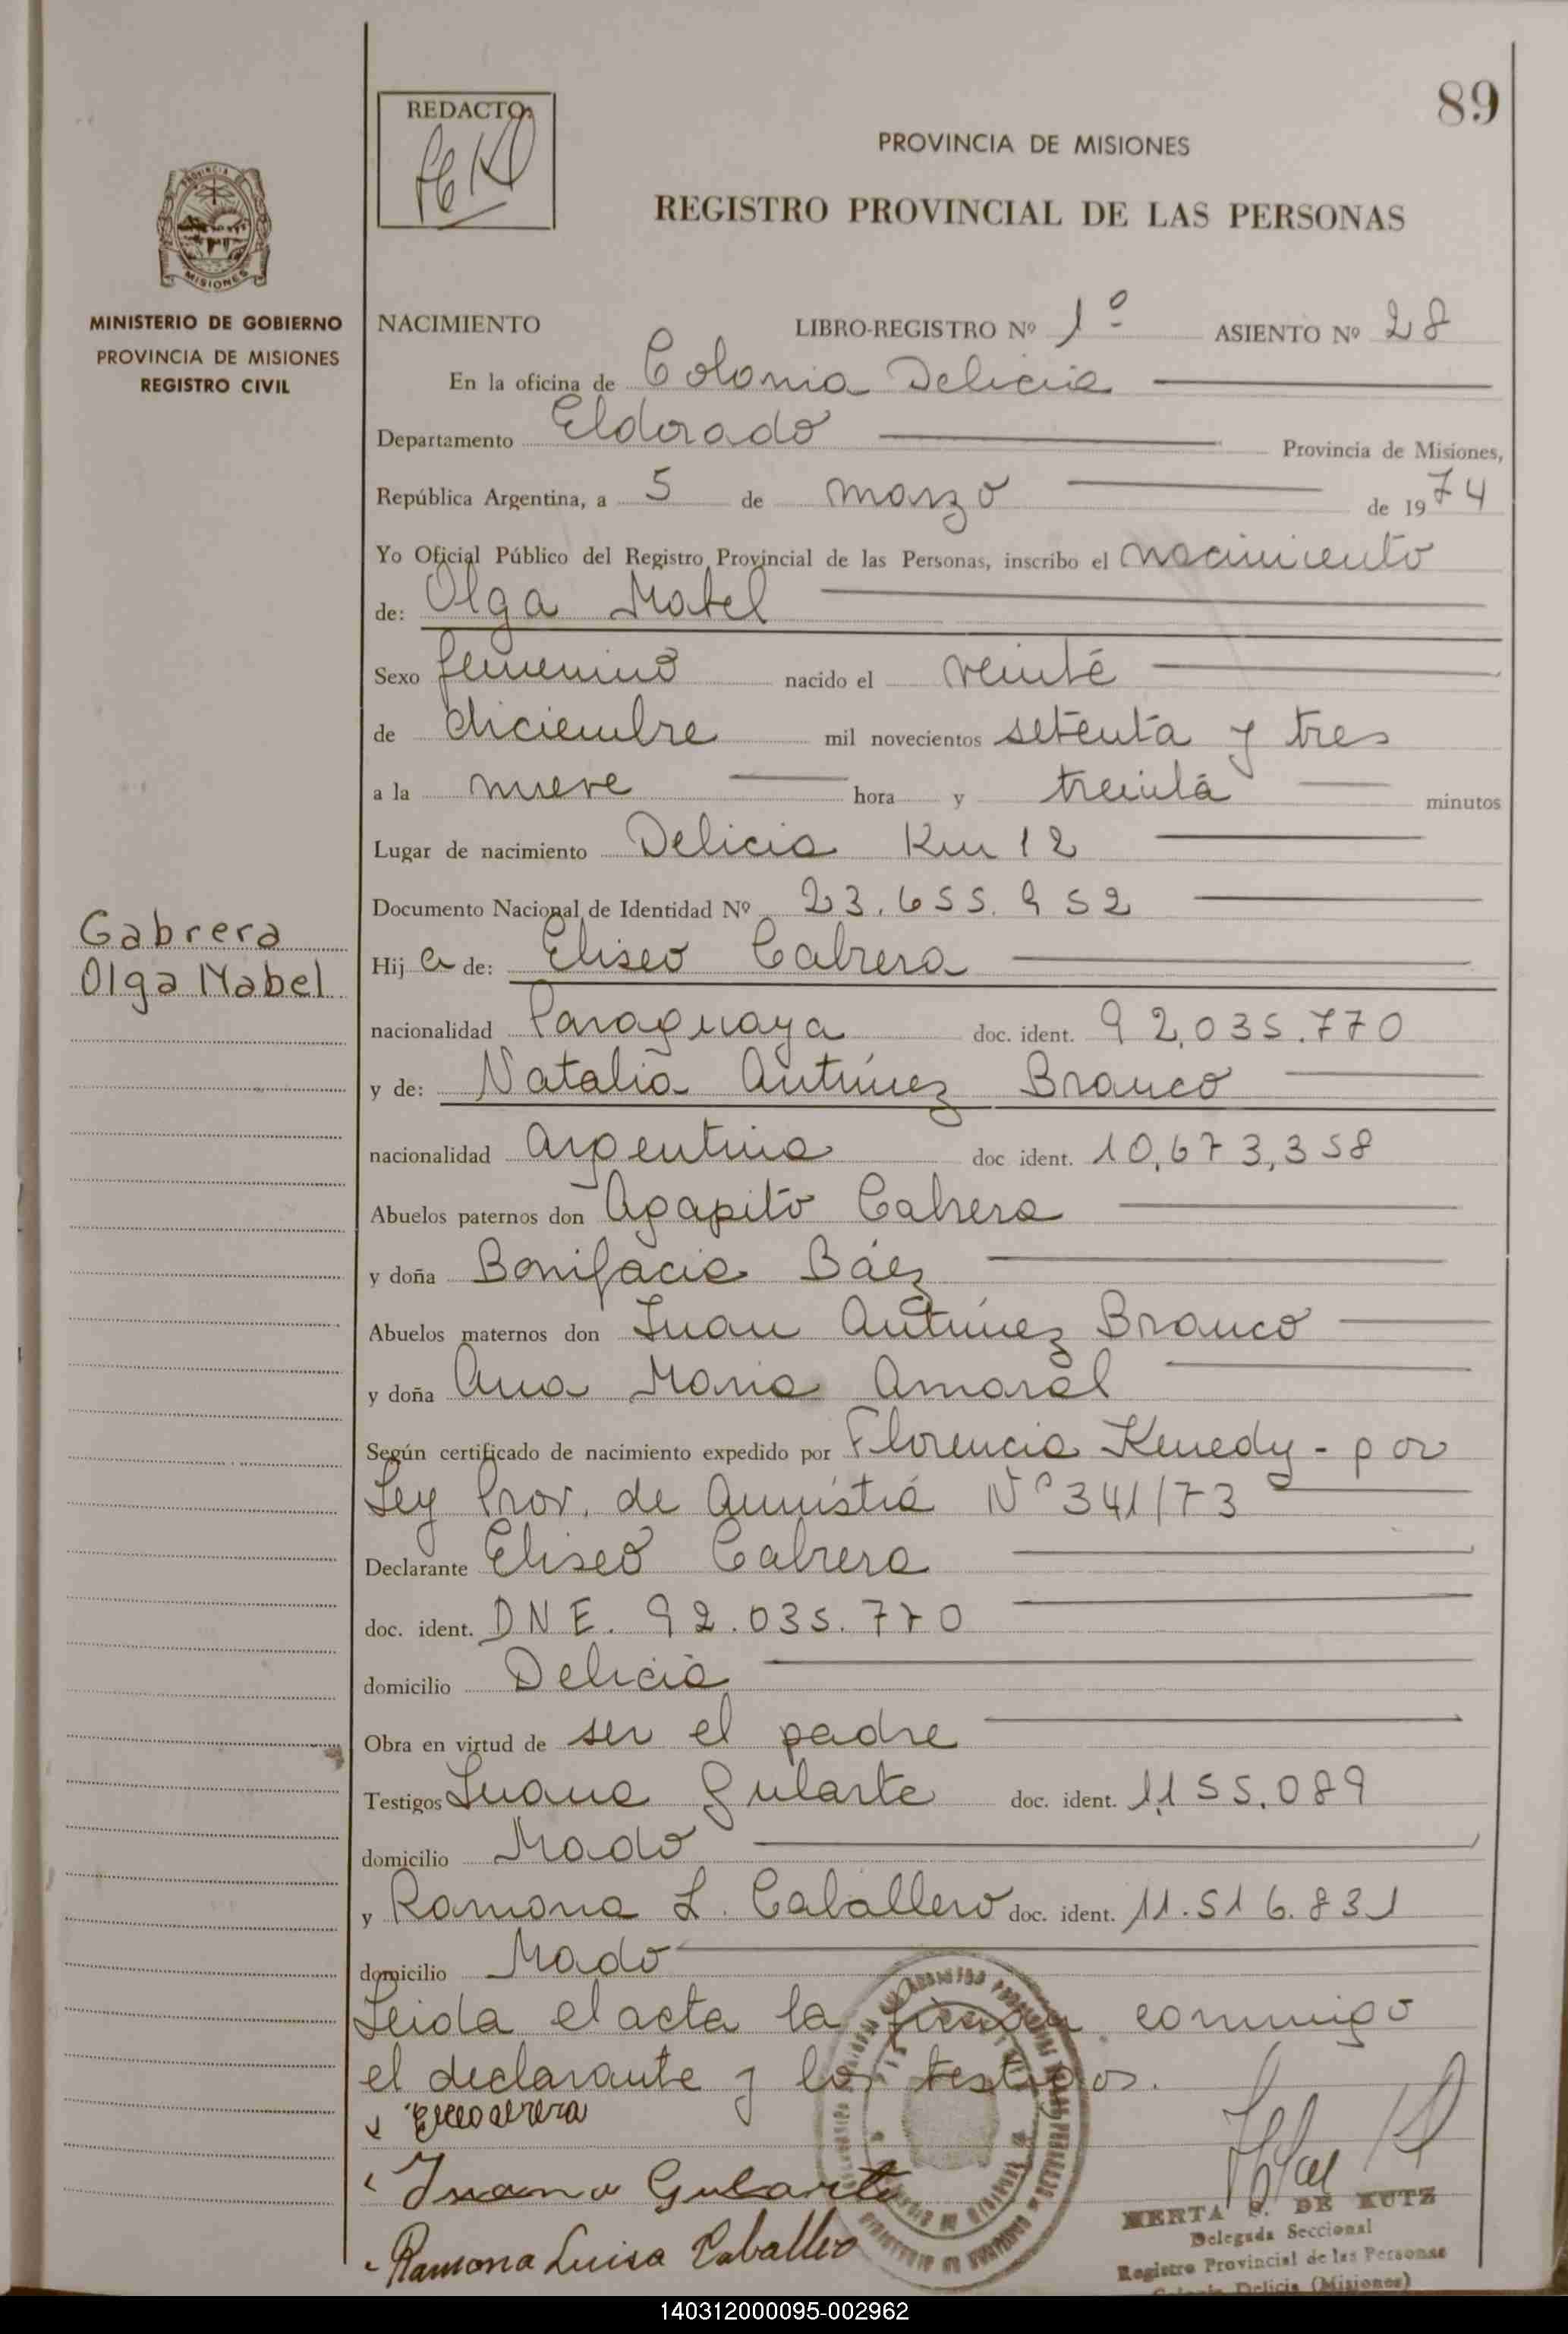 89
REDACTO:
PROVINCIA DE MISIONES
REGISTRO PROVINCIAL DE LAS PERSONAS
PROVINCIA DE
MISIONES
MINISTERIO DE GOBIERNO
PROVINCIA DE MISIONES
REGISTRO CIVIL
NACIMIENTO LIBRO-REGISTRO Nº 1º ASIENTO Nº 28
En la oficina de Colonia Delicia
Departamento Eldorado Provincia de Misiones,
República Argentina, a 5 de marzo de 1974
Yo Oficial Público del Registro Provincial de las Personas, inscribo el nacimiento
de: Olga Mabel
Sexo femenino nacido el veinte
de diciembre mil novecientos setenta y tres
a la nueve hora y treinta minutos
Lugar de nacimiento Delicia Km 12
Documento Nacional de Identidad Nº 23.655.952
Cabrera
Olga Mabel
Hija de: Eliseo Cabrera
nacionalidad Paraguaya doc. ident. 92.035.770
y de: Natalia Antúnez Branco
nacionalidad Argentina doc ident. 10,673,358
Abuelos paternos don Agapito Cabrera
y doña Bonifacia Báez
Abuelos maternos don Juan Antúnez Branco
y doña Ana Maria Amaral
Según certificado de nacimiento expedido por Florencia Kenedy - por
Ley Prov. de Amnistia Nº 341/73
Declarante Eliseo Cabrera
doc. ident. DNE. 92.035.770
domicilio Delicia
Obra en virtud de ser el padre
Testigos Juana Gularte doc. ident. 1,155.089
domicilio Mado
y Ramona L. Caballero doc. ident. 11.516.831
domicilio Mado
Leida el acta la firman conmigo
el declarante y los testigos.
Juana Gularte
Ramona Luisa Caballero
MERTA S. DE KUTZ
Delegada Seccional
Registro Provincial de las Personas
Colonia Delicia (Misiones)
140312000095-002962